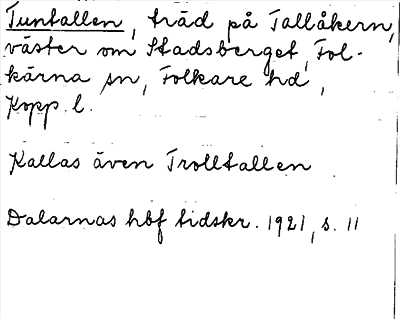 Tuntallen, träd på Tallåkern,
väster om Stadsberget, Fol-
kärna sn, Folkare hd,
Kopp. l.
Kallas även Trolltallen
Dalarnas hbf tidskr. 1921, s. 11